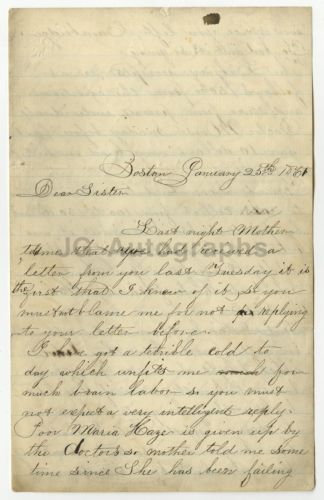 Boston January 25th 1861
Dear Sister
Last night Mother
told me that you had received a
letter from you last Tuesday it is
the first that I knew of it so you
must not blame me for not replying
to your letter before.
I have got a terrible cold to
day which unfits me for
much brain labor so you must
not expect a very intelligent reply.
Poor Maria Haze is given up by
the doctors so mother told me some
time since She has been failing
JG Autographs